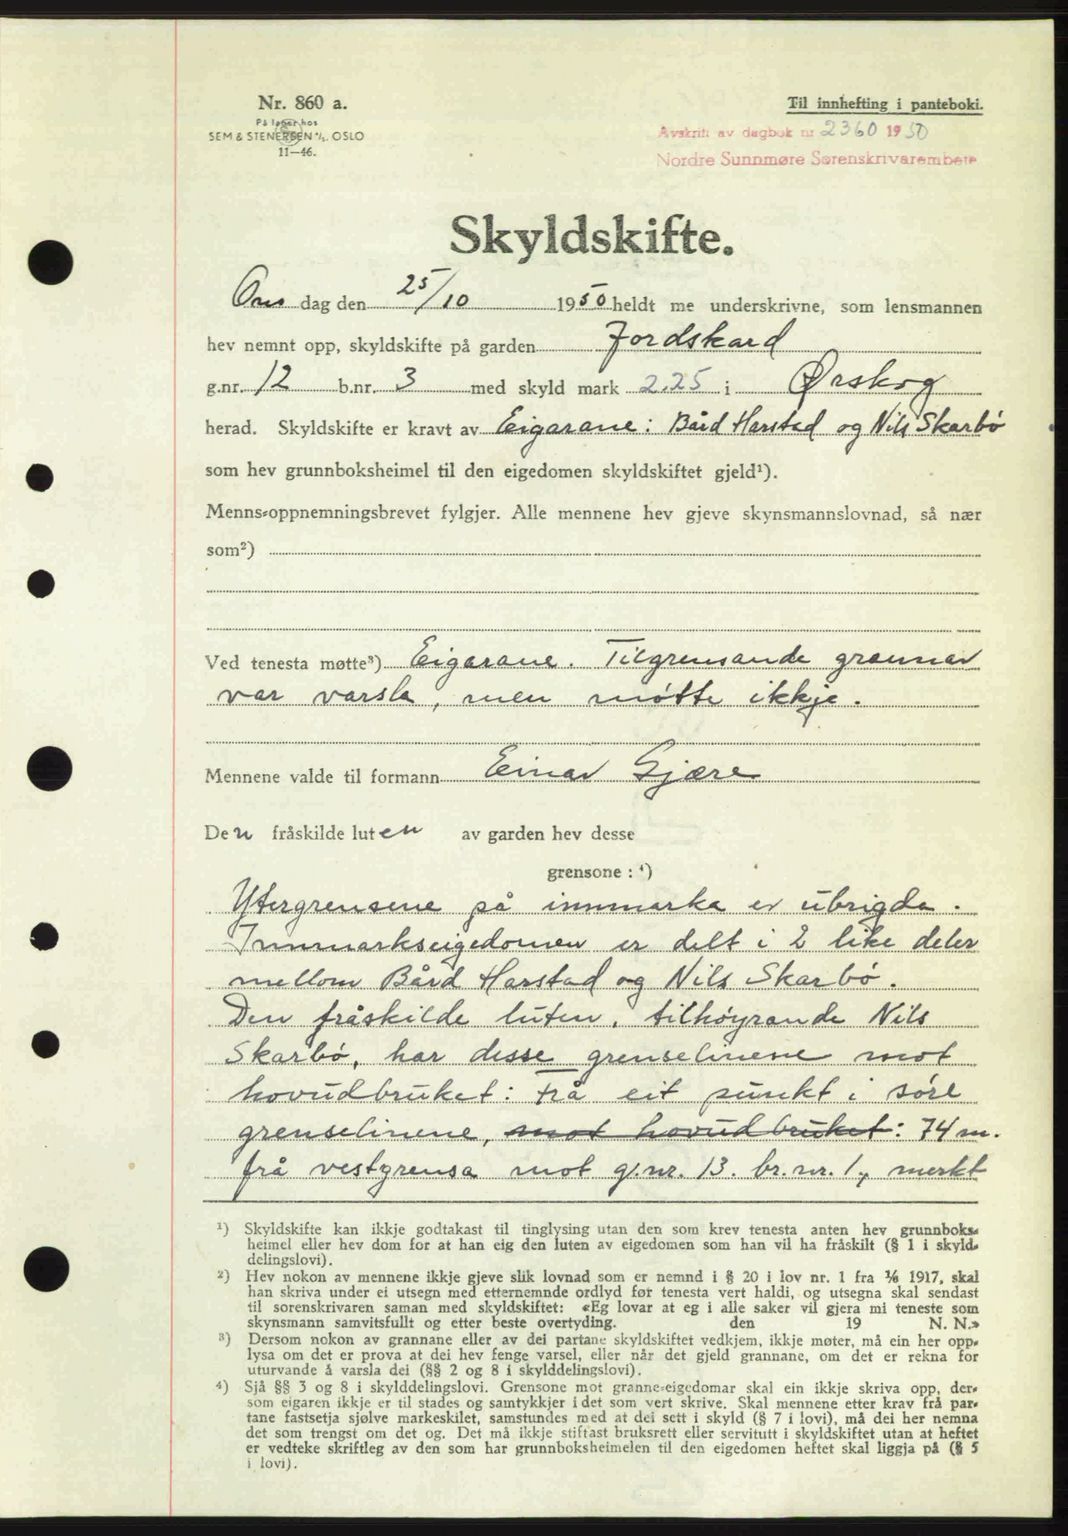 Nr. 860 a.
På lager hos
SEM & STENERSEN A/S. OSLO
11—46.
Til innhefting i panteboki.
Avskrift av dagbok nr 2360 1950
Nordre Sunnmøre Sorenskrivarembete
Skyldskifte.
Ons dag den 25/10 1950 heldt me underskrivne, som lensmannen
hev nemnt opp, skyldskifte på garden Jordskard
g.nr. 12 b.nr. 3 med skyld mark 2.25 i Ørskog
herad. Skyldskifte er kravt av Eigarane: Bård Harstad og Nils Skarbø
som hev grunnboksheimel til den eigedomen skyldskiftet gjeld¹).
Menns-oppnemningsbrevet fylgjer. Alle mennene hev gjeve skynsmannslovnad, så nær
som²)
Ved tenesta møtte³) Eigarane. Tilgrensande grannar
var varsla, men møtte ikkje.
Mennene valde til formann Einar Gjære
Den fråskilde luten av garden hev desse
grensone : ⁴)
Ytergrensene på innmarka er ubrigda.
Innmarkseigedomen er delt i 2 like deler
mellom Bård Harstad og Nils Skarbø.
Den fråskilde luten, tilhøyrande Nils
Skarbø, har desse grenselinene mot
hovudbruket: Frå eit punkt i søre
grenselinene, mot hovudbruket: 74 m.
frå vestgrensa mot g.nr. 13. br.nr. 1, merkt
¹) Skyldskifte kan ikkje godtakast til tinglysing utan den som krev tenesta anten hev grunnboks-
heimel eller hev dom for at han eig den luten av eigedomen som han vil ha fråskilt (§ 1 i skyld-
delingslovi).
²) Hev nokon av mennene ikkje gjeve slik lovnad som er nemnd i § 20 i lov nr. 1 fra 1/6 1917, skal
han skriva under ei utsegn med etternemnde ordlyd før tenesta vert haldi, og utsegna skal sendast
til sorenskrivaren saman med skyldskiftet: «Eg lovar at eg i alle saker vil gjera mi teneste som
skynsmann samvitsfullt og etter beste overtyding. den 19 N. N.»
³) Dersom nokon av grannane eller av dei partane skyldskiftet vedkjem, ikkje møter, må ein her opp-
lysa om det er prova at dei hev fenge varsel, eller når det gjeld grannane, om det er rekna for
uturvande å varsla dei (§§ 2 og 8 i skylddelingslovi).
⁴) Sjå §§ 3 og 8 i skylddelingslovi. Grensone mot granne-eigedomar skal ein ikkje skriva opp, der-
som eigaren ikkje er til stades og samtykkjer i det som vert skrive. Skal mennene etter krav frå par-
tane fastsetja sjølve markeskilet, samstundes med at dei sett i skyld (§ 7 i lovi), må dei her nemna
det som trengst om det og. Det må ikkje stiftast bruksrett eller servitutt i skyldskiftet utan at heftet
er vedteke skriftleg av den som har grunnboksheimelen til den eigedomen heftet skal liggja på (§ 5
i lovi).